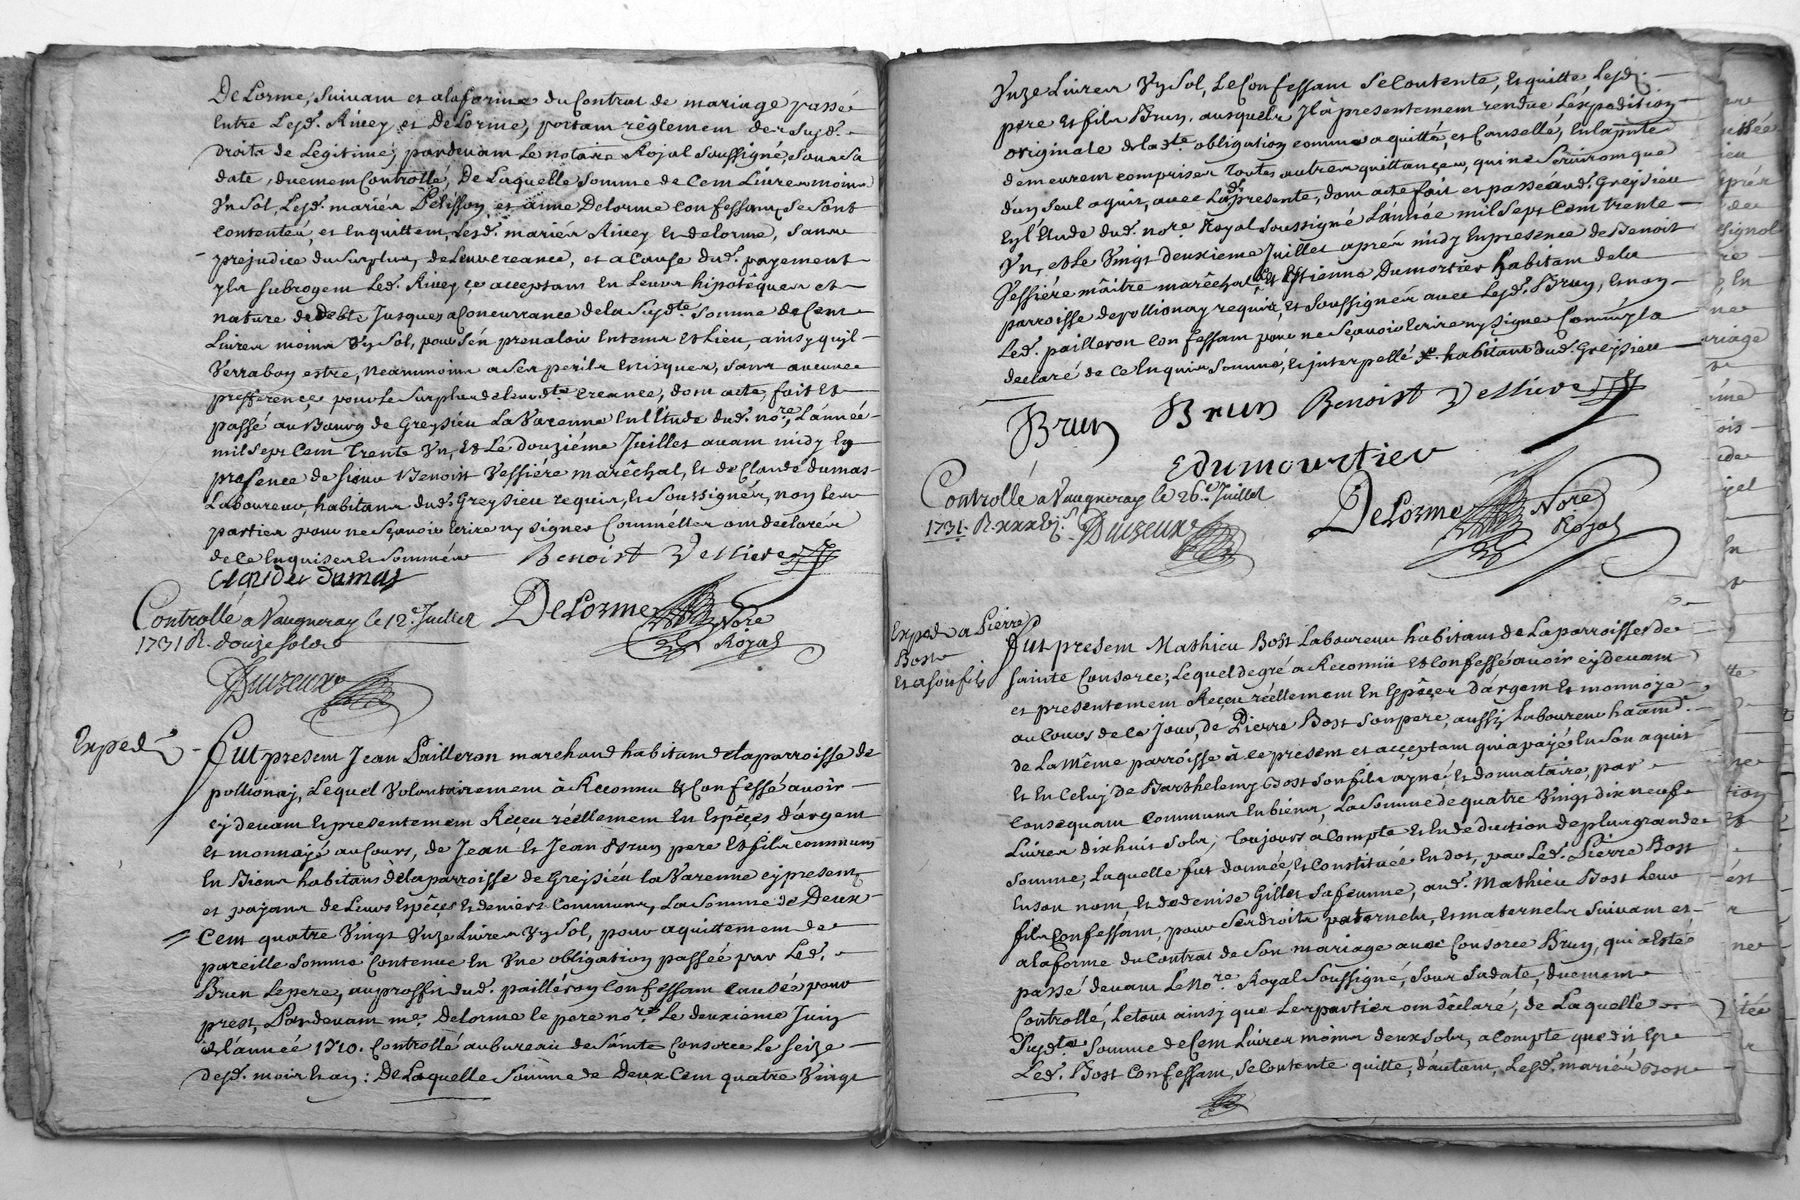 DeLorme, Suivam et alaforme du Contrat de mariage passé
Entre Lesd. Rivey et DeLorme, portam règlement des Susd.
droits de Legitime, pardevam Le notaire Royal Soussigné, Sous Sa
date, duemem Controllé, De Laquelle Somme de Cem Livres moins
Vn Sol, Lesd. mariés Pelisson et anne Delorme Confessam, Se Sont
Contentés, et En quittem, Lesd. mariés Rivey Et delorme, Sans
prejudice du Surplus, de Leur creance, et a Cause dud. payement
yls Subrogem Led. Rivey ce acceptam En Leurs hipotêques et
nature de debte Jusques a Concurrance de la Susd.te Somme de Cem
Livres moins Vn Sol, pour S'en prevaloir En tems Et Lieu, ainsy qu'il
Verra bon estre, neammoins a Ses perils Et risques, Sans aucune
presserence pour Le Surplus de leurd.te creance, dom acte, fait Et
passé au Bourg de Greysieu La Varenne En L'Etude dud. no.re, L'année
mil Sept Cem Trente Vn, Et Le douziéme Juillet avam midy En
presence de Sieur Benoist Vessiére marêchal, Et de Claude dumas
Laboureur, habitans dud. Greysieu requis, Et Soussignés, non Les
parties pour ne Sçavoir Ecrire ny Signer Comm'elles om declarés
de Ce Enquises Et Sommés
Benoist Vessiere
Claude dumas
DeLorme No.re Royal
Controllé a Vaugneray le 12.e Juillet
1731 R. douze Sols
Duizeux
Exped.
Fut presem Jean Pailleron marchand habitam de la parroisse de
pollionay, Lequel Volontairemem à Reconnu Et Confessé avoir
cy devam Et presentemem Reçeu réellemem En Espêçes d'argem
Et monnoye au Cours, de Jean Et Jean Brun pere Et fils communs
En Biens habitans de la parroisse de Greysieu la Varenne cy presens
et payans de Leurs Espêçes Et deniers Communs, La Somme de Deux
Cem quatre Vingt Vnze Livres Vn Sol, pour aquittemem de
pareille Somme Contenue En Vne obligation passée par Led.
Brun Le pere, au proffit dud. pailleron Confessam Causée pour
prest, Pardevam me. Delorme le pere no.re Le deuxiéme Juin
de L'année 1710. Controllé au bureau de Sainte Consorce Le Seize
desd. mois Et an: De Laquelle Somme de Deux Cem quatre Vingt
Vnze Livres Vn Sol, Le Confessam Se Contente, Et quitte Lesd.
pere Et fils Brun, ausquels Jl à presentemem rendue L'éxpedition
originale de lad.te obligation comme aquittée, et Cansellée, En laquelle
demeurem comprises Toutes autres quittançes, qui ne Serviront que
d'un Seul aquit, avec La presente, dom acte fait et passé aud. Greysieu
En L'Etude dud. no.re Royal Soussigné L'année mil Sept Cem trente
Vn, et Le Vingt deuxieme Juillet aprés midy En presence de Benoit
Vessiére mâitre marêchal Et Estienne Dumortier habitam de la
parroisse de pollionay requis, Et Soussignés avec Lesd. Brun, Et non
Led. pailleron Confessam pour ne Sçavoir Ecrire ny Signer Comm'yl a
declaré de Ce Enquis Sommé, Et interpellé habitans dud. Greysieu
Brun Brun Benoist Vessiere
Edumourtier
Controllé a Vaugneray le 26.e Juillet
1731. R.
Duizeux
DeLorme No.re Royal
Exped. a Pierre
Bost
Et a Son fils
Fut presem Mathieu Bost Laboureur habitans de La parroisse de
Sainte Consorce, Lequel de gré a Reconnü Et Confessé avoir cy devam
et presentemem Reçeu réellemem En Espêçes d'argem Et monnoye
au Cours de Ce Jour, de Pierre Bost Son pere, aussy Laboureur
de La même parroisse à ce presem et acceptam qui a payé En Son aquit
Et En Celuy de Barthelemy Bost Son fils ayné Et donnataire, par
Consequam Communs En biens, La Somme de quatre Vingt dix neuf
Livres dix huit Sols, Toujours a Compte Et En deduction de plus grande
Somme, Laquelle fut donnée, Et Constituée En dot, par Led. Pierre Bost
En Son nom Et de denise Gillet Sa femme, aud. Mathieu Bost Leur
fils Confessam, pour Ses droits paternels, Et maternels Suivam et
a la forme du Contrat de Son mariage avec Consorce Brun, qui a Esté
passé devam Le No.re Royal Soussigné, Sous Sa date, duemem
Controllé, Le tout ainsy que Les parties om dêclaré, de Laquelle
Susd.te Somme de Cem Livres moins deux Sols, a Compte que dit Est
Led. Bost Confessam, Se Contente quitte, d'autam, Lesd. mariés Bost